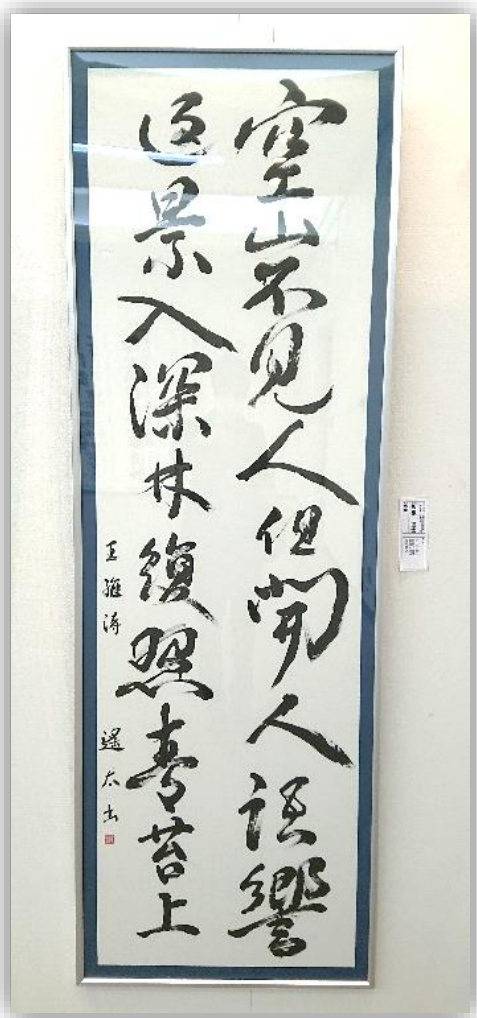 空山不見人但聞人語響
返景入深林復照青苔上
王維詩 遥太書